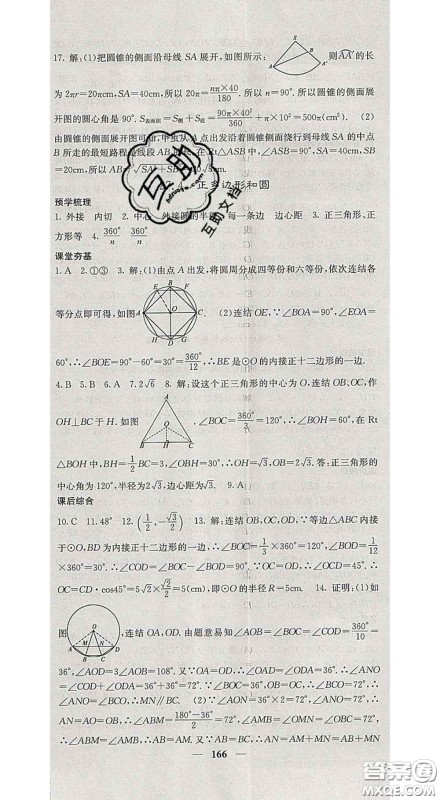 17. 解:(1)把圆锥的侧面沿母线 SA 展开,如图所示: 则AA′的长
为 2πr=20πcm,SA=40cm,所以 20π=nπ×40/180. 所以 n=90°. 所以圆锥的侧面展
开图的圆心角是 90°. S表面积=S侧+S底=90π×40²/360+π×10²=500π(cm²). (2)
由圆锥的侧面展开图可知,甲虫从 A 点出发沿着圆锥侧面绕行到母线 SA 的中点
B 所走的最短路程是线段 AB 的长.在 Rt△ASB 中,∠ASB=90°,SA=40cm,SB
=20cm,所以 AB=√SA²+SB²=
正多边形和圆
预学梳理
1. 外接 内切 2. 中心 外接圆的半径 每一条边 边心距 3. 正三角形、正
方形等 4. 360°/n 360°/n
课堂夯基
1. A 2. ①③ 3. 解:(1)由点 A 出发,将圆周分成四等份和六等份,依次连结各
等分点即可得,如图 (2)连结 OE, ∵∠BOA=90°,∠EOA=
60°,∴∠BOE=90°-60°=30°=360°/12,∴BE 是⊙O 的内接正十二边形的一边.
4. B 5. B 6. A 7. 2√6 8. 解:设这个正三角形的中心为 O,连结 OB、OC,作
OH⊥BC 于 H. 如图 . ∠BOC=360°/3=120°,∴∠BOH=60°,在 Rt
△BOH 中,BH=1/2 BC=3,∠OBH=30°,∴OH=√3,OB=2√3. 答:正三角形的
中心角为 120°,半径为 2√3,边心距为√3. 9. A
课后综合
10. C 11. 48° 12. (1/2,-√3/2) 13. 解:连结 OB、OC、OD,∵等边△ABC 内接
于⊙O,BD 为内接正十二边形的一边,∴∠BOC=1/3×360°=120°,∠BOD=1/12
×360°=30°,∴∠COD=∠BOC-∠BOD=90°. ∵OC=OD,∴∠OCD=45°. ∴
OC=CD·cos45°=5√2×√2/2=5(cm),即⊙O 的半径 R=5cm. 14. 证明:(1)如
图 ,连结 OA、OD. 由题意易知∠AOB=∠BOC=∠COD=360°/10=
36°,∠AOD=3∠AOB=108°. 又∵OA=OD,∴∠ADO=∠OAD=36°,∴∠ANO
=∠COD+∠ADO=36°+36°=72°. ∵OB=OC,∠BOC=36°,∴∠OCB=72°. ∴
∠ANO=∠OCB,∴MN∥BC. (2)∵∠AON=∠AOB+∠BOC=72°,∴
AN=AO=OB=AM,∴∠ABM=180°-36°/2=72°. ∵∠AMB=∠OMN=72°,
∴∠ABM=∠AMB,∴AB=AM. 又∵AB=BC,∴AN=AM+MN=AB+MN
166
互助
互助文档
答案圈
MXQE.COM